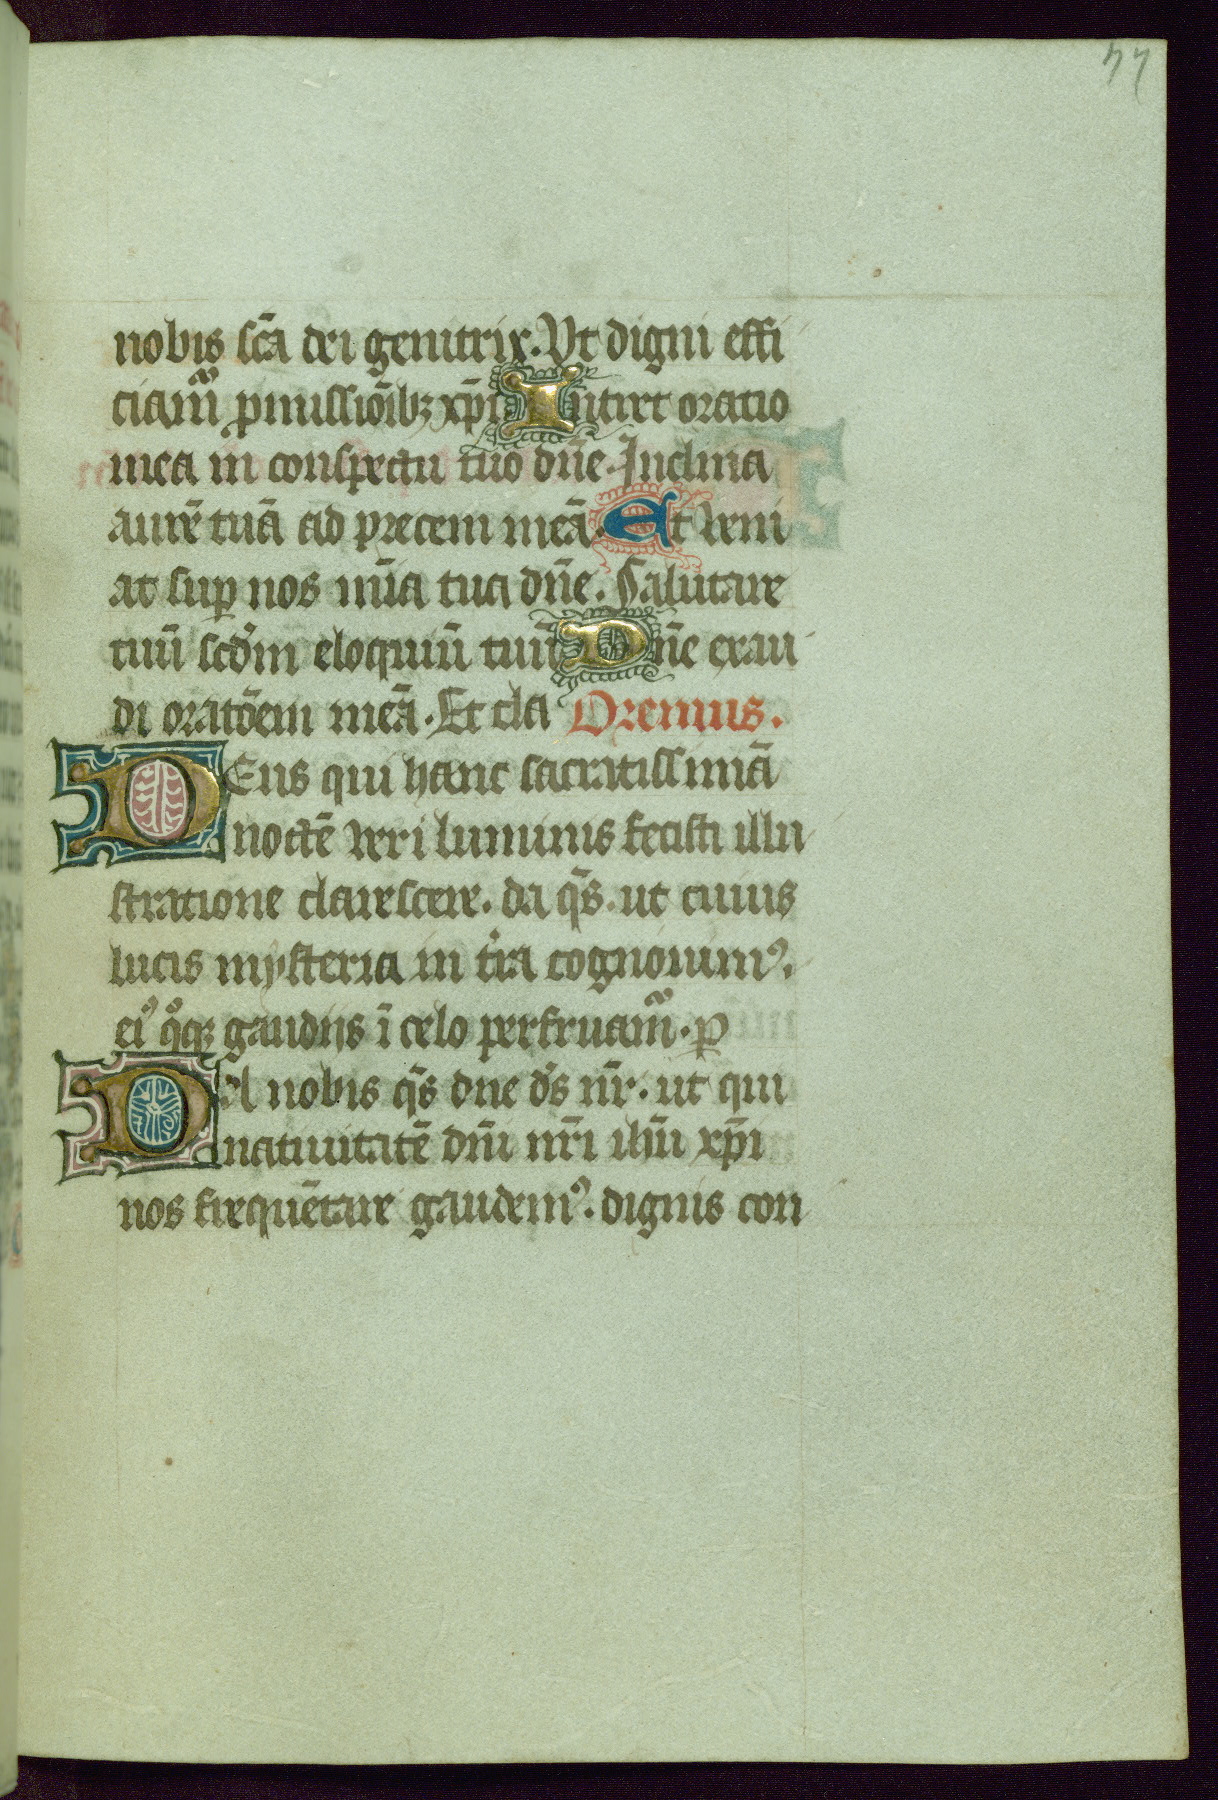 77
nobis sc̄a dei genitrix. Vt digni effi
ciam̄ p̄missioīb; xp̄i Intret oratio
mea in conspectu tuo dn̄e. Inclina
aurē tuā ad precem meā. Et veni
at sup nos mīa tua dn̄e. Salutare
tuū scd̄m eloquiū tuū Dn̄e exau
di orat̄oem meā. Et cla Oremus.
DEus qui hanc sacratissimā
noctē veri luminis fecisti illu
stratione clarescere. da q̄s. ut cuius
lucis mysteria in t̄ra cognouim⁹.
ei⁹ qͦq; gaudijs ī celo perfruam̄. p
DA nobis q̄s dn̄e d̄s nr̄. ut qui
natiuitatē dn̄i nr̄i ih̄u xp̄i
nos frequētare gaudem⁹. dignis con